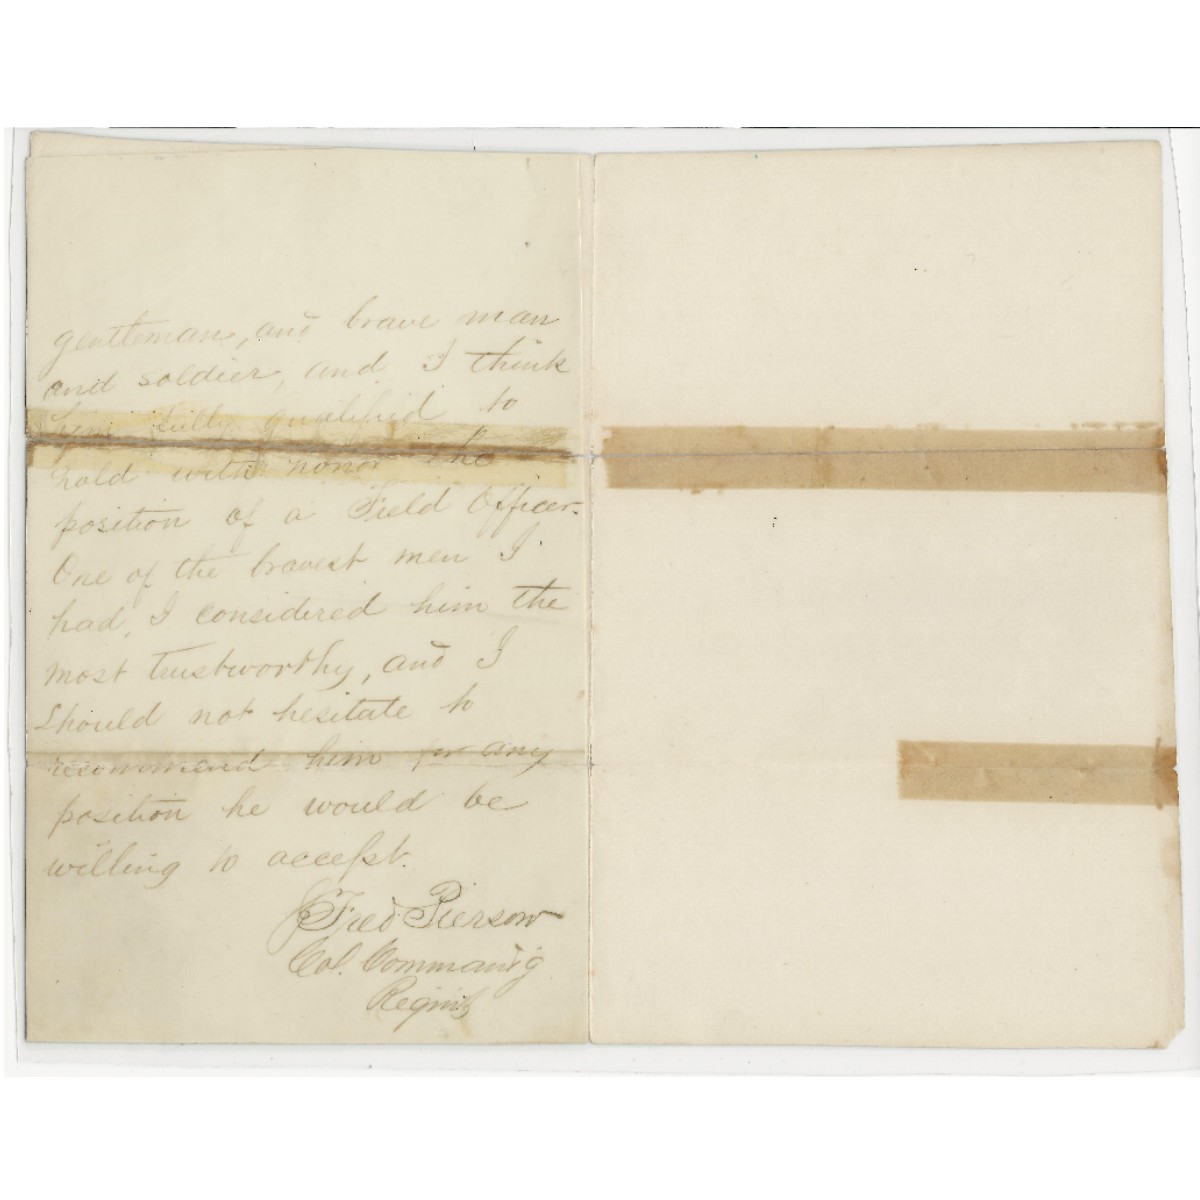 gentleman, and brave man
and soldier, and I think
him fully qualified to
hold with honor the
position of a Field Officer.
One of the bravest men I
had, I considered him the
most trustworthy, and I
should not hesitate to
recommend him for any
position he would be
willing to accept.
J Fred Pierson
Col. Command'g
Regim't